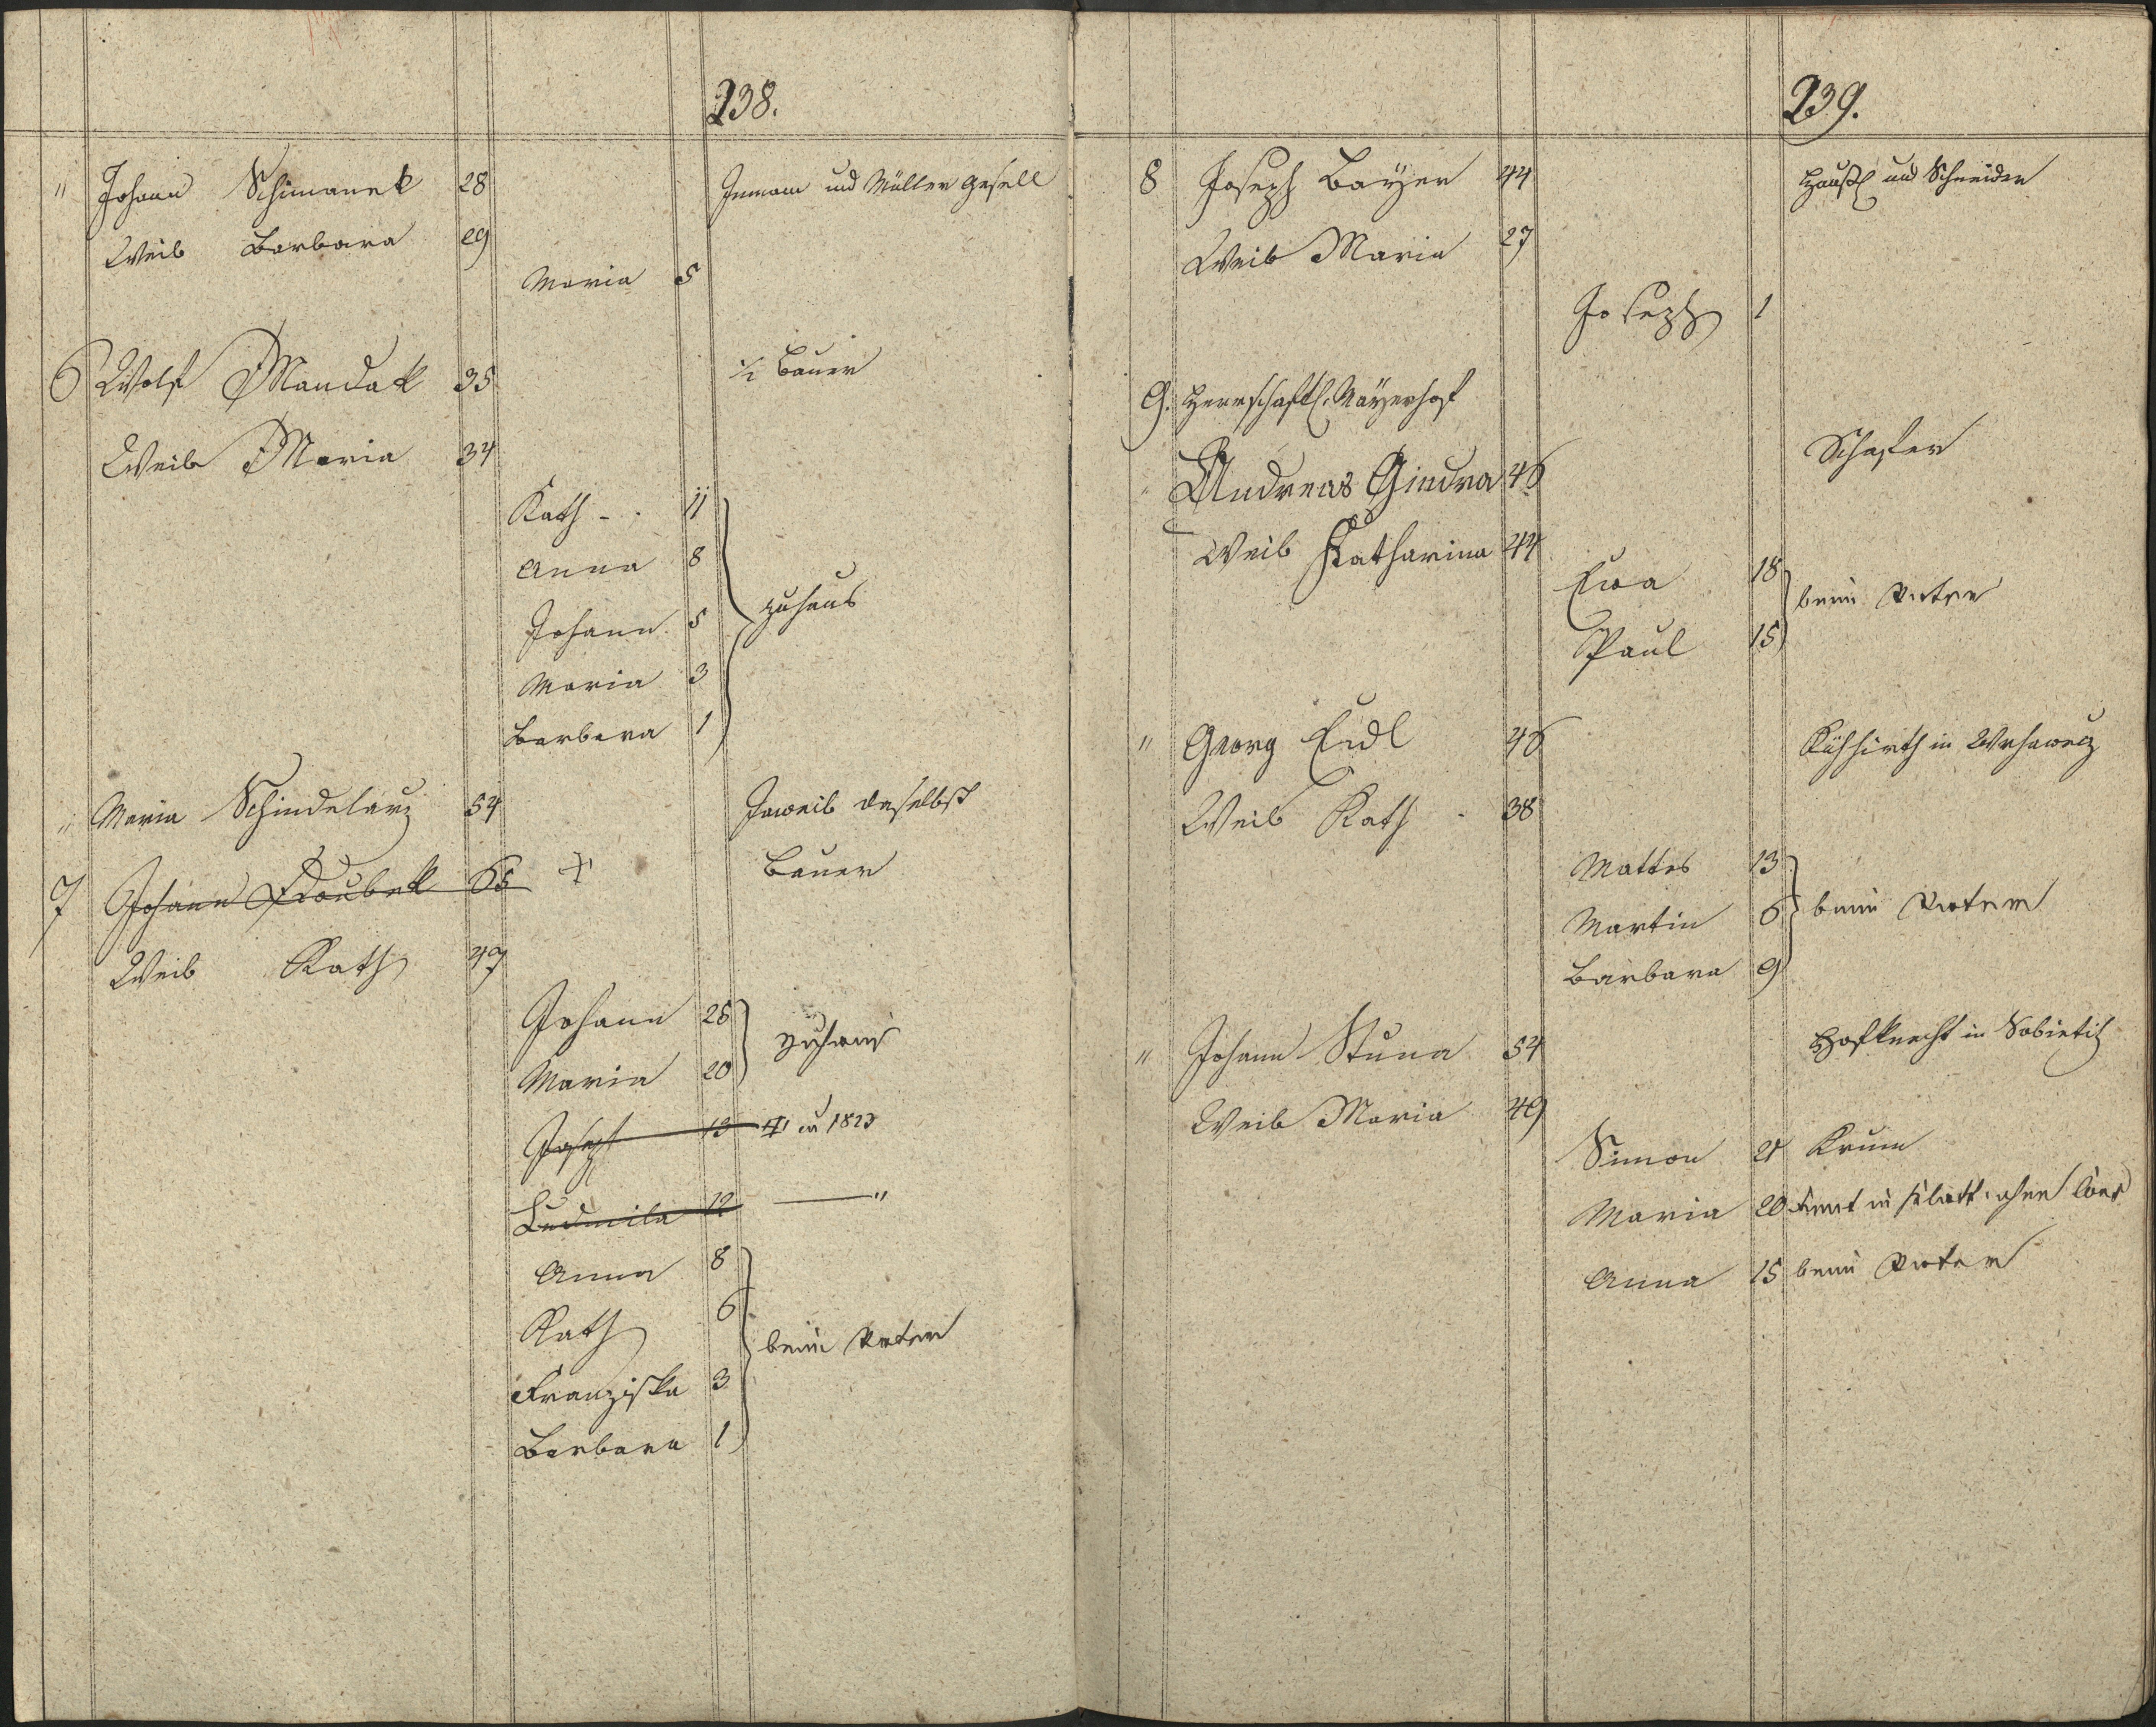 238.
" Johann Schimanek 28 Inmann und Müller Gesell
Weib Barbara 29
Maria 5
6 Wolf Mandak 35 1/2 Bauer
Weib Maria 34
Kath - . 11
Anna 8
Johann 5 zuhaus
Maria 3
Barbara 1
" Maria Schindelarz 54 Inweib daselbst
7 Johann Doubek 65 + Bauer
Weib Kath 47
Johann 25 zuhaus
Maria 20
Joseph 13 + in 1823
Ludmila 12 — "
Anna 8
Kath 6 beim Vater
Franziska 3
Barbara 1
239.
8 Joseph Bayer 44 Häusl und Schneider
Weib Maria 27
Joseph 1
9. Herrschaftl. Mayerhof
" Andreas Gindra 46 Schafer
Weib Katharina 44
Eva 18 beim Vater
Paul 15
" Georg Eidl 46 Kühhirth in
Weib Kath . 38
Mattes 13
Martin 6 beim Vater
Barbara 9
" Johann Stuna 54 Hofknecht in Sobietitz
Weib Maria 49
Simon 21 Krum
Maria 20 dient in Klatt. ohne Cons
Anna 15 beim Vater